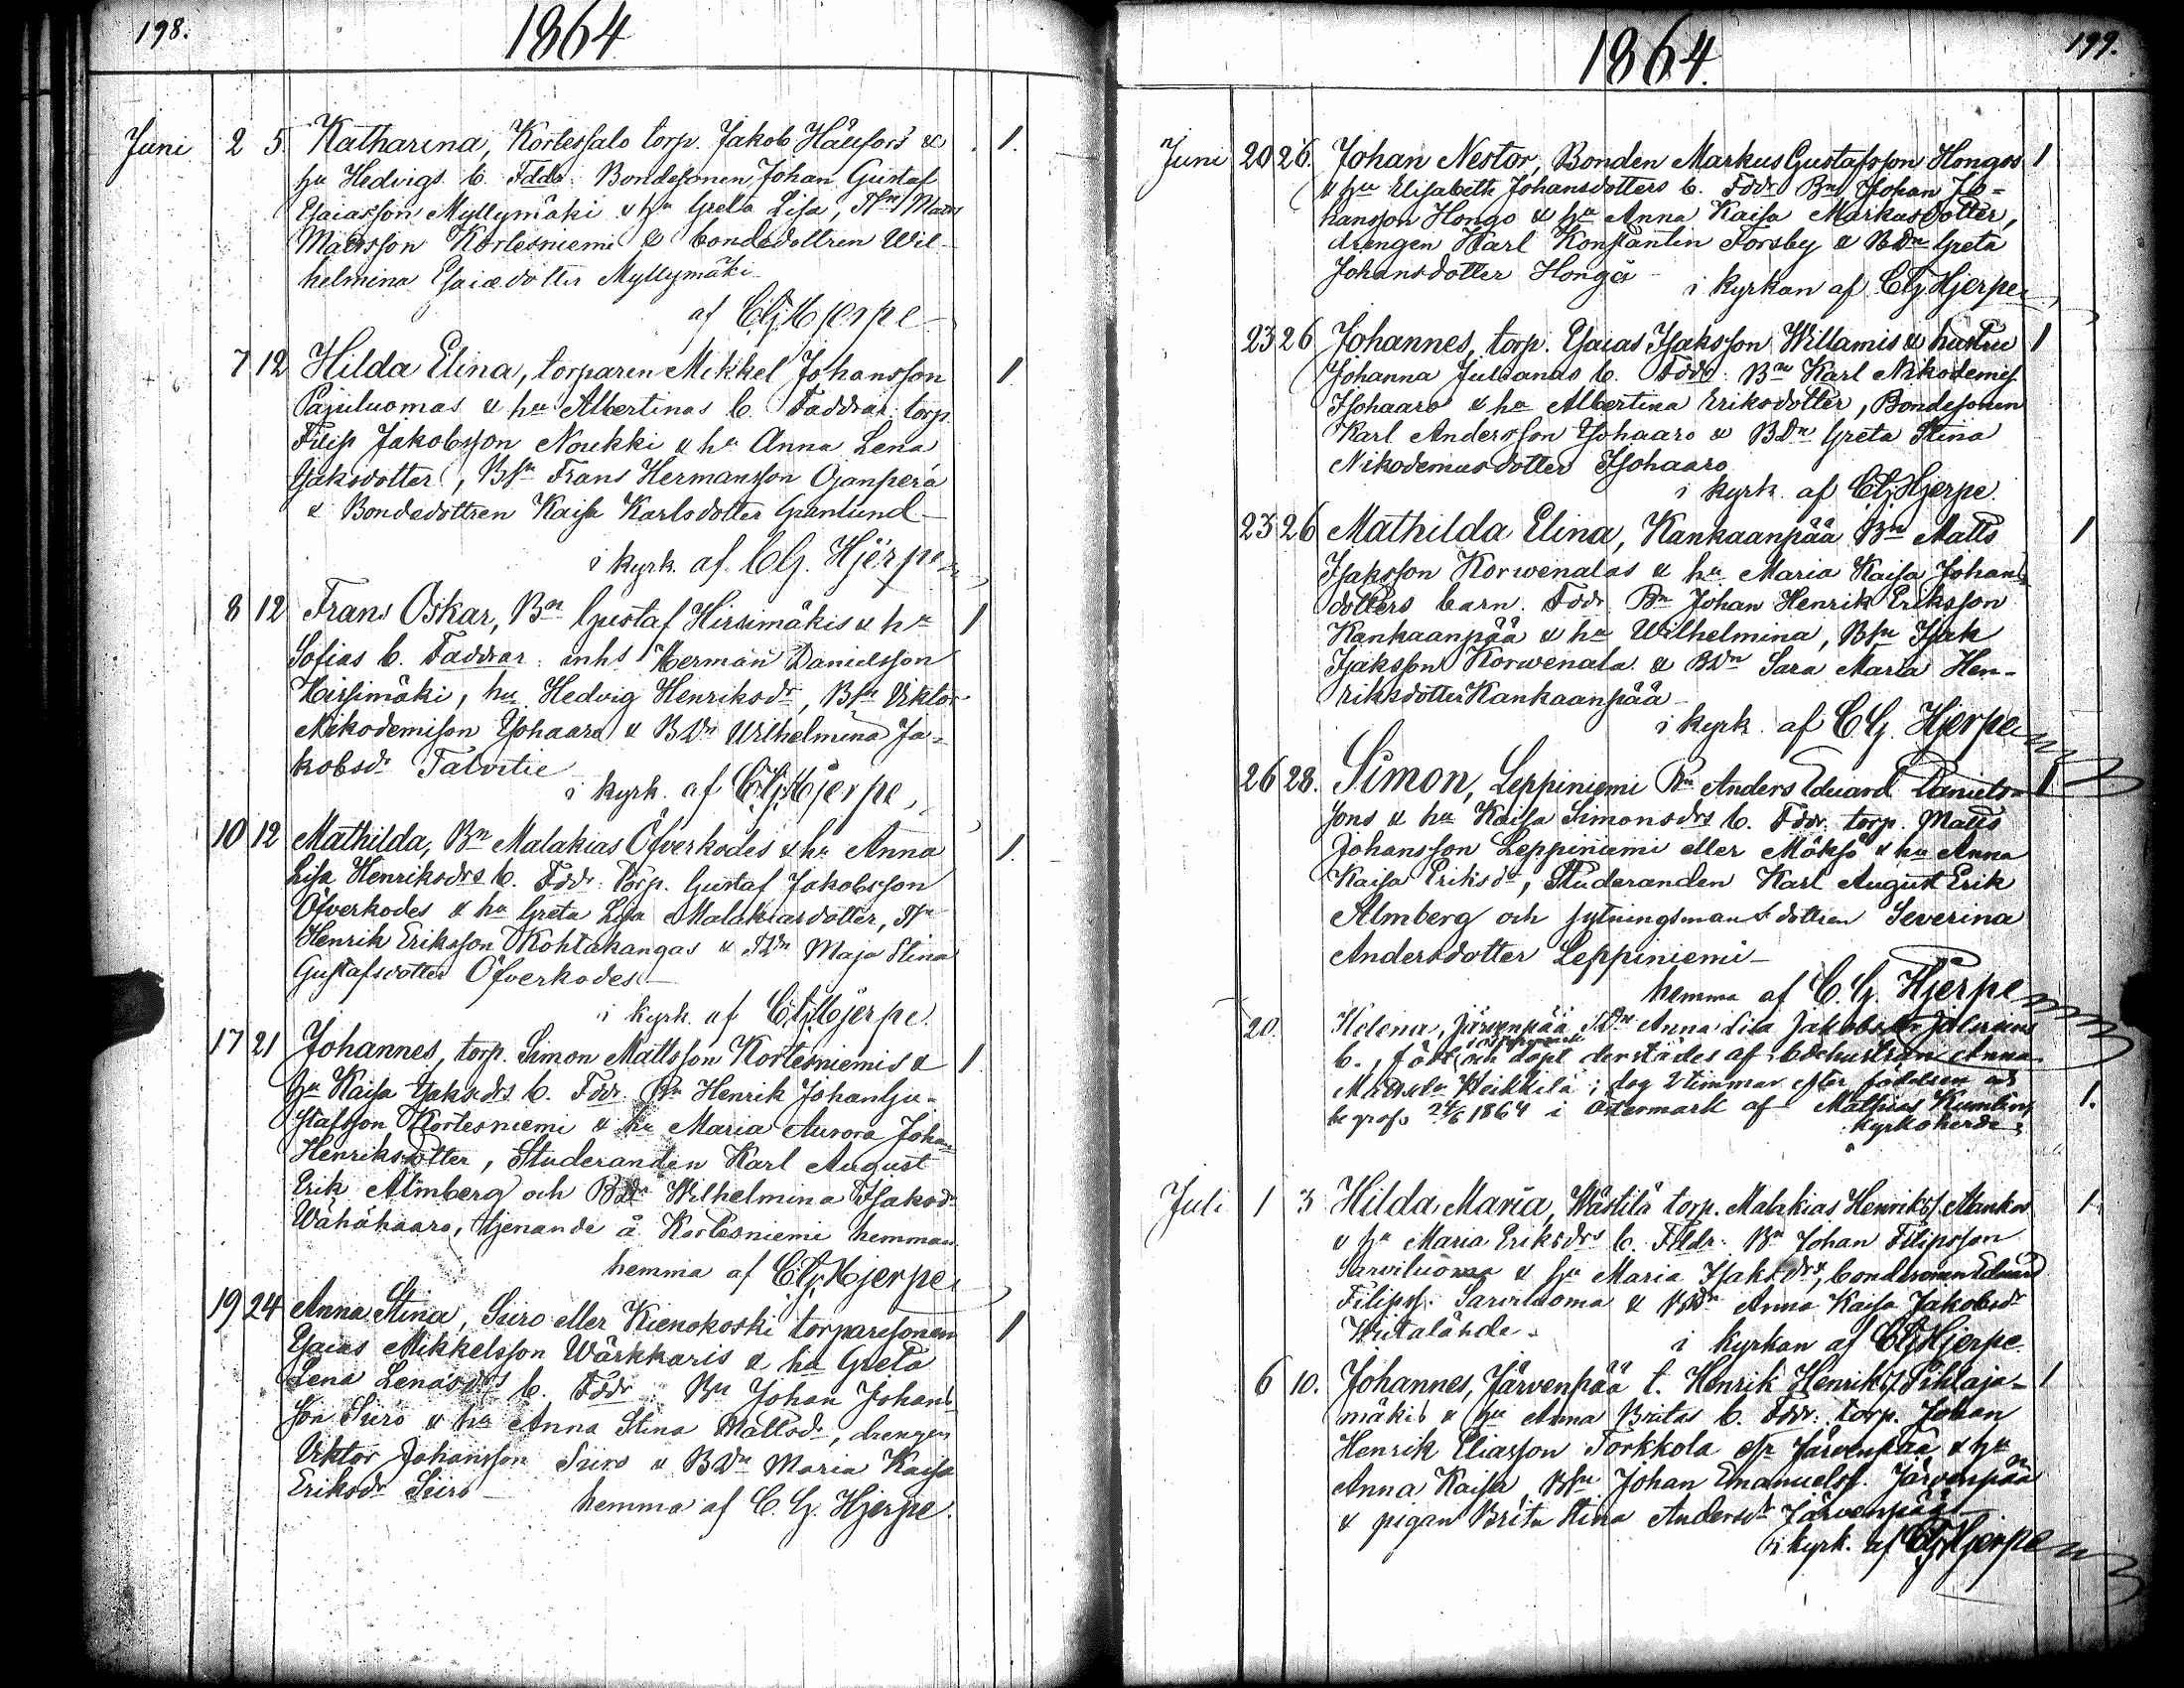 198.
1864
Juni 2 5. Katharina, Kortessalo torp. Jakob Hällfors &
hu Hedvigs b. Fddr. Bondesonen Johan Gustaf
Esaiasson Myllymäki & hu Greta Lisa, Tsn Matts
Mattsson Kortesniemi & bondedottren Wil-
helmina Esaiædotter Myllymäki
af CGHjerpe
7 12 Hilda Elina, torparen Mikkel Johansson 1
Pajuluomas & hu Albertinas b. Faddrar torp.
Filip Jakobsson Noukki & hu Anna Lena
Isaksdotter, Bsn Frans Hermansson Ojanperä
& Bondedottren Kaisa Karlsdotter Granlund
i kyrk. af CG. Hjerpe
8 12 Frans Oskar, Bn Gustaf Hirsimäkis & hu 1
Sofias b. Faddrar: inhs Herman Danielsson
Hirsimäki, hu Hedvig Henriksdr, Bsn Viktor
Nikodemison Ysohaaro & BDn Wilhelmina Ja-
kobsdr Talvitie
i kyrk. af CGHjerpe
10 12 Mathilda, Bn Malakias Öfverkodes & hu Anna 1.
Lisa Henriksdrs b. Fddr: torp. Gustaf Jakobsson
Öfverkodes & hu Greta Lisa Malakiasdotter, Tsn
Henrik Eriksson Kohtakangas & TDn Maja Stina
Gustafsdotter Öfverkodes
i kyrk. af CGHjerpe.
17 21 Johannes, torp. Simon Mattsson Kortesniemis & 1
hu Kaisa Isaksdrs b. Fddr. Bn Henrik Johan Gu-
stafsson Kortesniemi & hu Maria Aurora Johan
Henriksdotter, Studeranden Karl August
Erik Almberg och BDr Wilhelmina Isaksdr
Wähähaaro, tjenande å Kortesniemi hemman
hemma af CGHjerpe
19 24 Anna Stina, Siiro eller Kienokoski torparesonen 1
Esaias Mikkelsson Wärkkaris & hu Greta
Lena Lenasdrs b. Fddr. Bn Johan Johans
son Siiro & hu Anna Stina Mattsdr, drengen
Viktor Johansson Siiro & BDn Maria Kaisa
Eriksdr Siiro
hemma af C. G. Hjerpe.
1864.
199.
Juni 20 26. Johan Nestor, Bonden Markus Gustafsson Hongos 1
& hu Elisabeth Johansdotters b. Fddr Bn Johan Jo-
hansson Hongo & hu Anna Kaisa Markusdotter,
drengen Karl Konstantin Forsby & BDn Greta
Johansdotter Hongo
i kyrkan af CGHjerpe
23 26 Johannes, torp. Esaias Isaksson Willamis & hustru 1
Johanna Julianas b. Fddr: Bn Karl Nikodemiss.
Isohaaro & hu Albertina Eriksdotter, Bondesonen
Karl Andersson Ysohaaro & BDn Greta Stina
Nikodemusdotter Isohaaro
i kyrk. af CGHjerpe.
23 26 Mathilda Elina, Kankaanpää Bn Matts 1
Isaksson Korwenalas & hu Maria Kaisa Johans
dotters barn. Fddr. Bn Johan Henrik Eriksson
Kankaanpää & hu Wilhelmina, Bsn Isak
Isaksson Korwenala & BDn Sara Maria Hen-
riksdotter Kankaanpää
i kyrk. af CG. Hjerpe
26 28. Simon, Leppiniemi Bn Anders Eduard Daniels- 1
sons & hu Kaisa Simonsdrs b. Fddr. torp. Matts
Johansson Leppiniemi eller Möksö & hu Anna
Kaisa Eriksdr, Studeranden Karl August Erik
Almberg och sytningsmansdottren Severina
Andersdotter Leppiniemi
hemma af C. G. Hjerpe
20. Helena, Järvenpää TDn Anna Lisa Jakobsdr
b., född och döpt derstädes af Anna
Heikkilä; dog 2 timmar efter födelsen och
begrofs 24/6 1864 i Östermark af Mathias Kumlin, 1.
kyrkoherde
Juli 1 3 Hilda Maria, Wästilä torp. Malakias Henrikss. Mankos 1
& hu Maria Eriksdrs b. Fddr. Bn Johan Filipsson
Sarviluoma & hu Maria Isaksdr, bondesonen Eduard
Filipss. Sarviluoma & BDn Anna Kaisa Jakobsdr
Wiitalähde.
i kyrkan af CGHjerpe.
6 10. Johannes, Järvenpää t. Henrik Henrikss. Pihlaja- 1
mäkis & hu Anna Britas b. Fddr: torp. Johan
Henrik Eliasson Torkkola Järvenpää & hu
Anna Kaisa, Bsn Johan Emanuelss. Järvenpää
& pigan Brita Stina Andersdr Järvenpää
i kyrk. af CGHjerpe